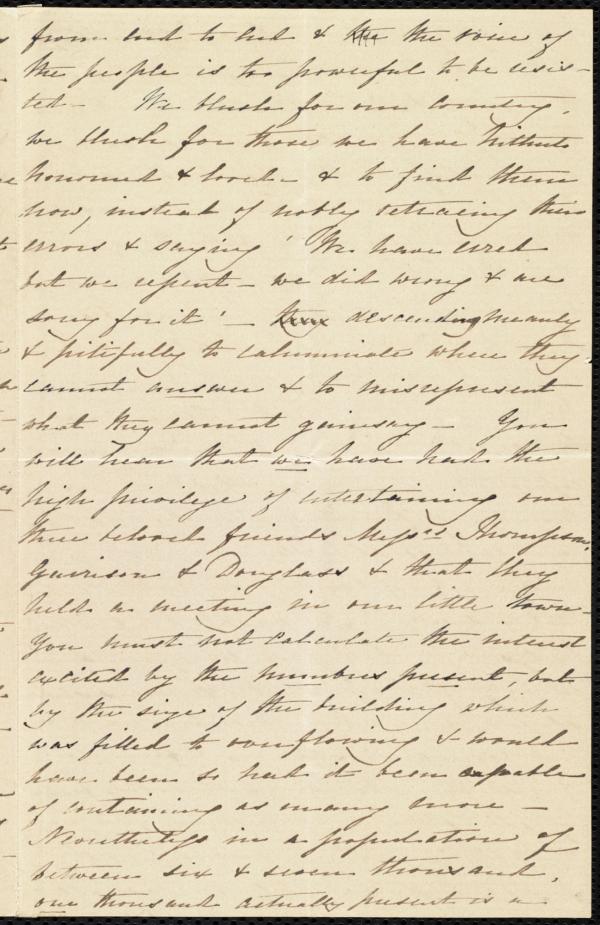 from end to end & the the voice of
the people is too powerful to be resis-
ted - We blush for our country,
we blush for those we have hitherto
honoured & loved - & to find them
now, instead of nobly retracing their
errors & saying 'We have erred
but we repent - we did wrong & are
sorry for it' - descending meanly
& pitifully to calumniate where they
cannot answer & to misrepresent
what they cannot gainsay - You
will hear that we have had the
high privilege of entertaining our
three beloved friends Messrs Thompson,
Garrison & Douglass & that they
held a meeting in our little town -
You must not calculate the interest
excited by the numbers present, but
by the size of the building which
was filled to overflowing & would
have been so had it been capable
of containing as many more -
Nevertheless in a population of
between six & seven thousand,
one thousand actually present is a